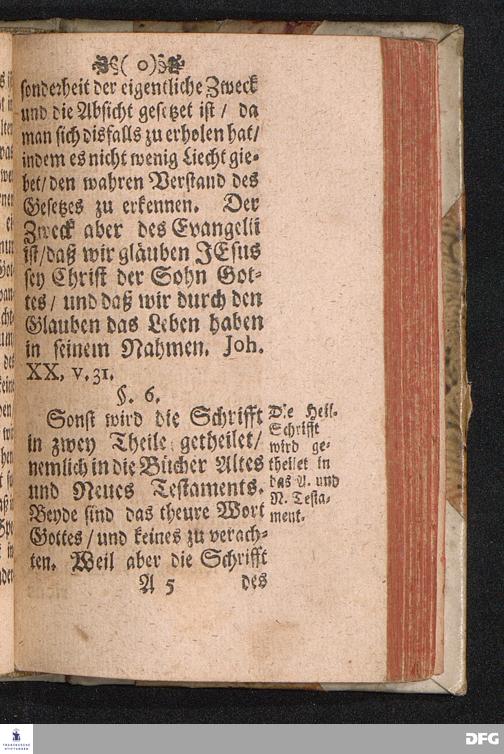 ( o )
sonderheit der eigentliche Zweck
und die Absicht gesetzet ist / da
man sich disfalls zu erholen hat /
indem es nicht wenig Liecht gie-
bet / den wahren Verstand des
Gesetzes zu erkennen. Der
Zweck aber des Evangelii
ist / daß wir gläuben JEsus
sey Christ der Sohn Got-
tes / und daß wir durch den
Glauben das Leben haben
in seinem Nahmen. Joh.
XX, v. 31.
§. 6.
Sonst wird die Schrifft
in zwey Theile getheilet /
nemlich in die Bücher Altes
und Neues Testaments.
Beyde sind das theure Wort
Gottes / und keines zu verach-
ten. Weil aber die Schrifft
A 5 des
Die Heil.
Schrifft
wird ge-
theilet in
das A. und
N. Testa-
ment.
FRANCKESCHE
STIFTUNGEN
DFG